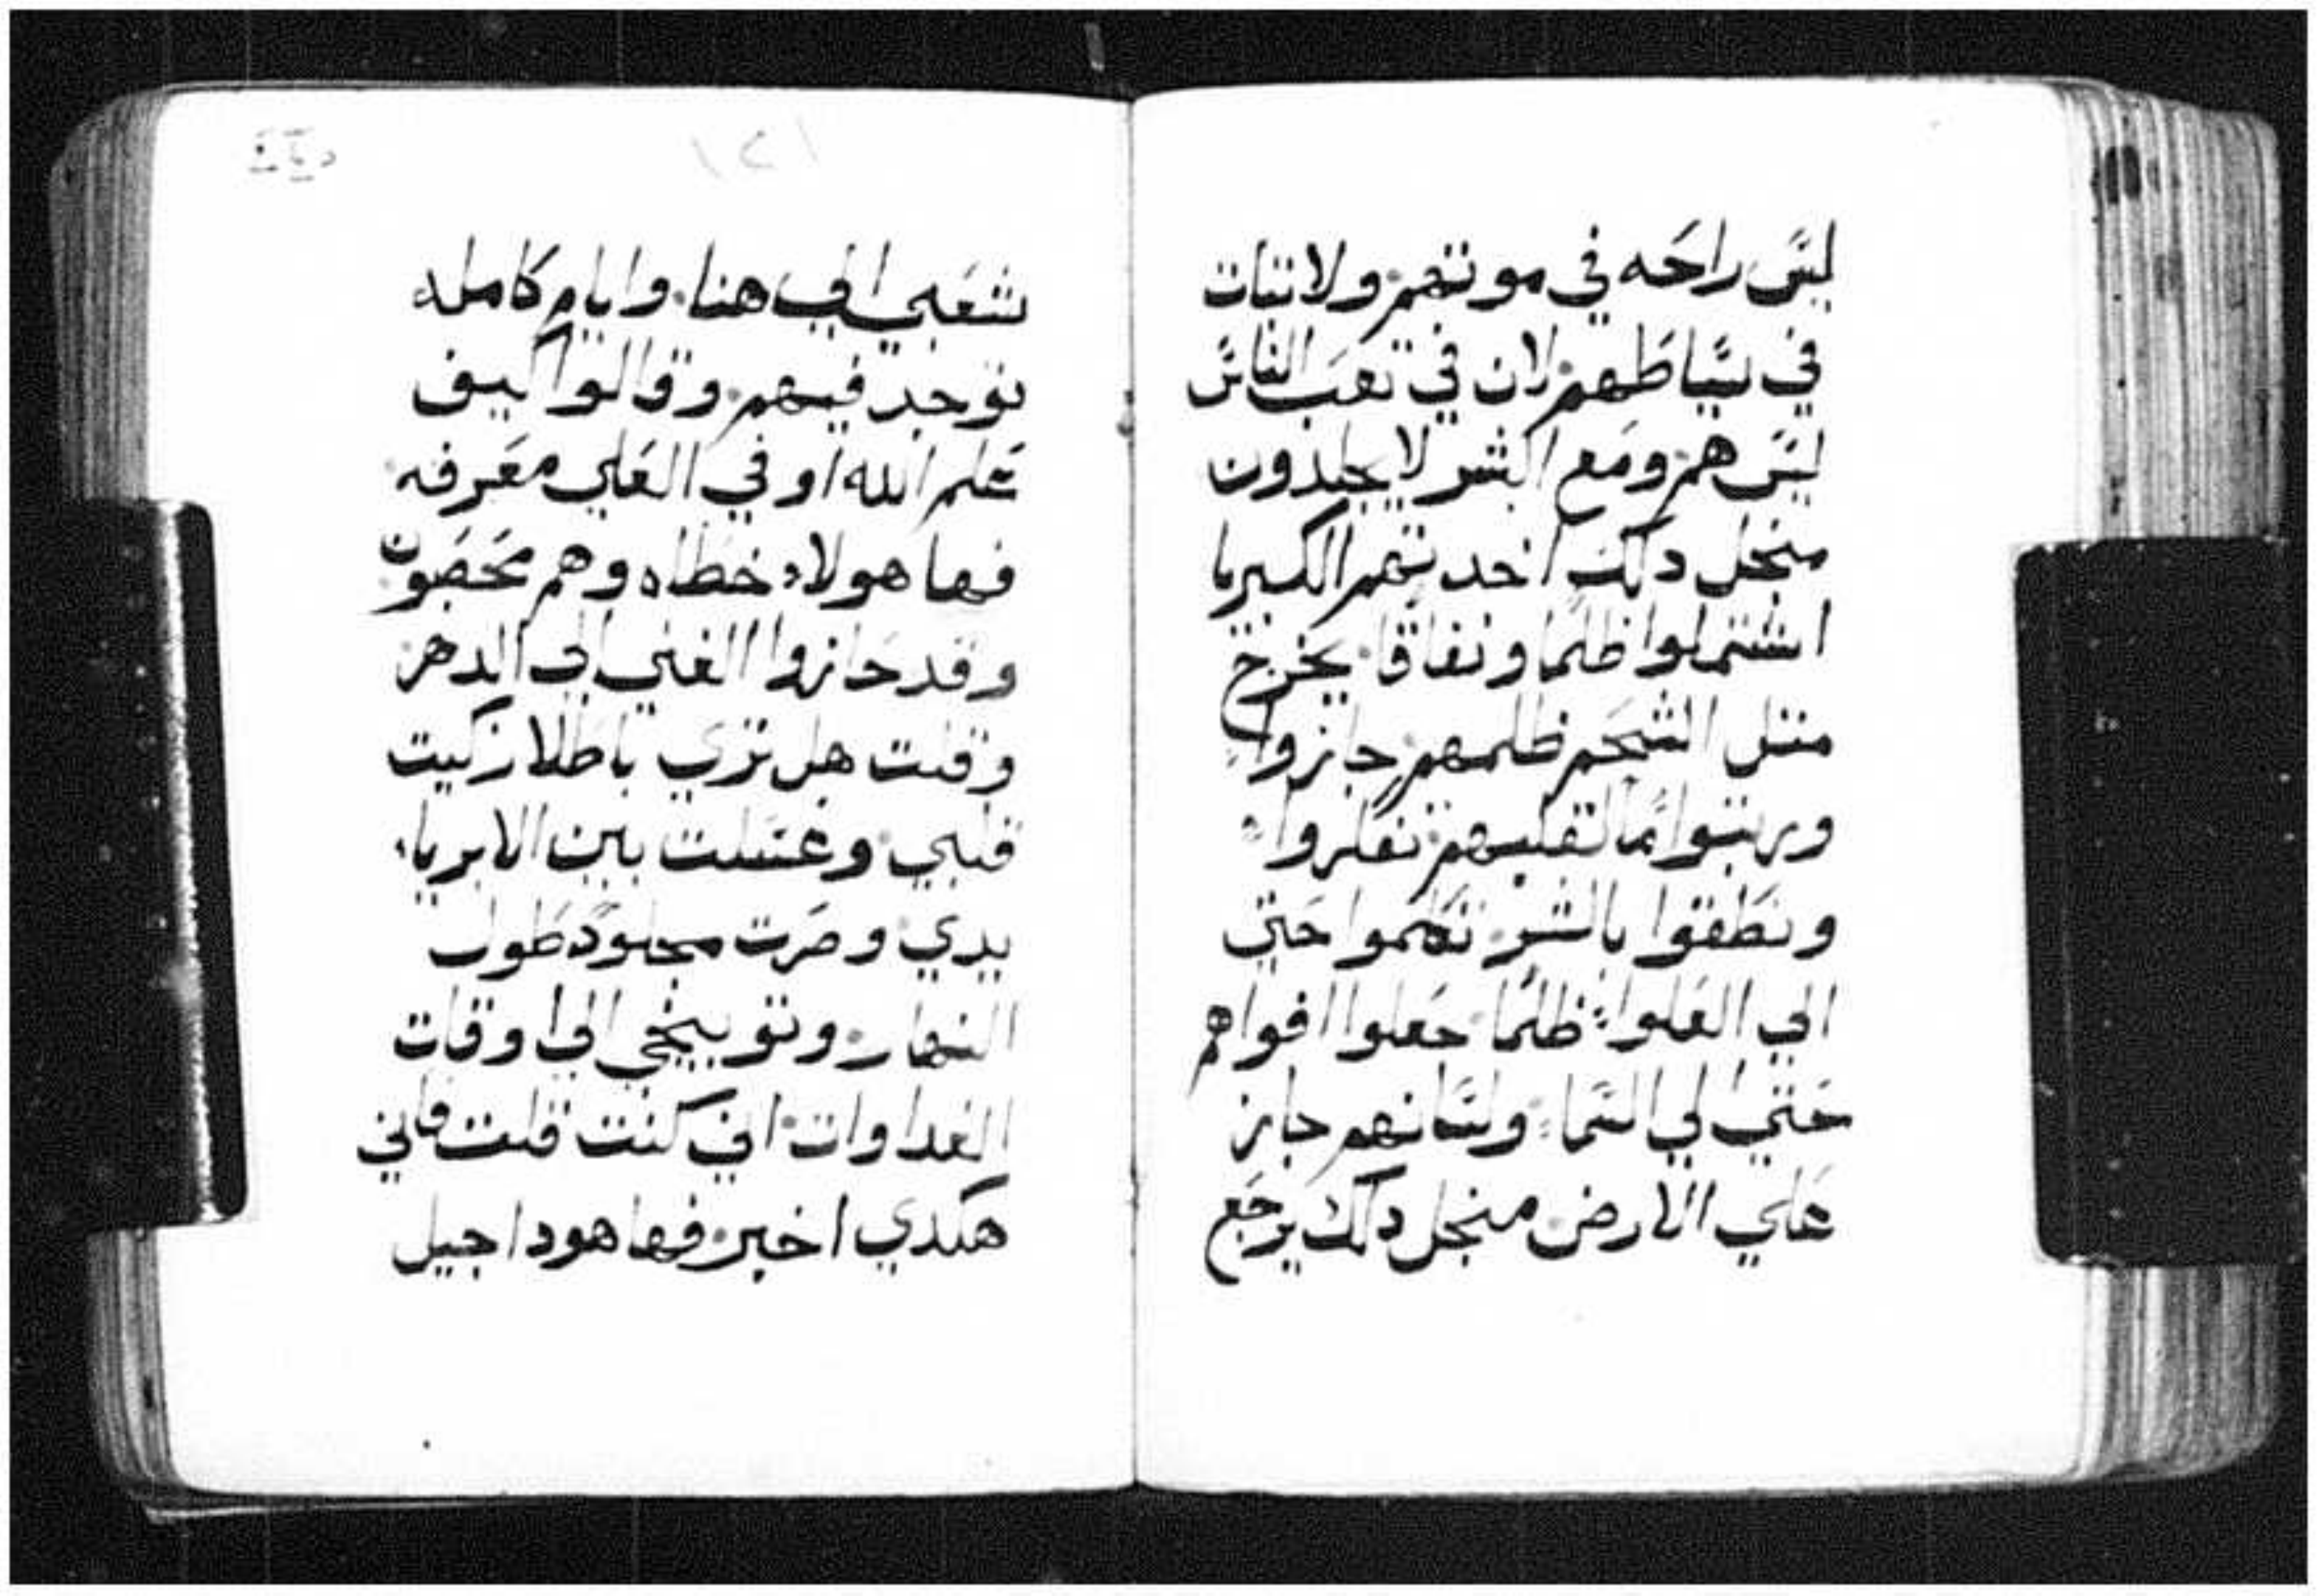 ليس راحه في موتهم ولا تبات
في سياطهم لان في تعب الناس
ليس هم ومع البشر لا يجلدون
منجل دلك اخدتهم الكبريا
اشتملوا ظلما ونفاقا يخرج
متل الشحم ظلمهم جازوا
ورتبوا ما لقلبهم تفكروا
ونطقوا بالشر تكلموا حتي
الي العلوا ظلما جعلوا افواهم
حتي الي السما ولسانهم جاز
علي الارض منجل دلك يرجع
١٢١
شعبي الي هنا وايام كامله
توجد فيهم وقالوا كيف
علم الله او في العلي معرفه
فها هولاء خطاه وهم مخصبون
وقد حازوا الغني الي الدهر
وقلت هل تري باطلا زكيت
قلبي وغسلت بين الابرياء
يدي وصرت مجلود طول
النهار وتوبيخي الي اوقات
الغداوات ان كنت قلت فاني
هكدي اخبر فها هودا جيل